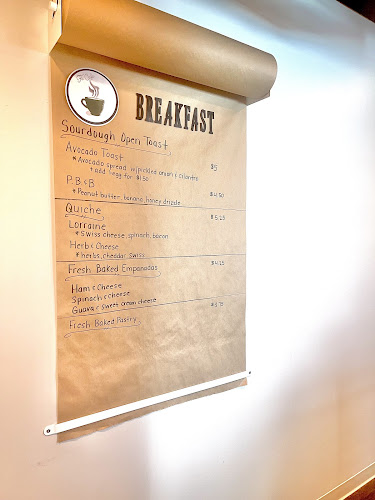 BREAKFAST
Sourdough Open Toast
Avocado Toast $5
* Avocado spread w/pickled onion & cilantro
+ add 1 egg for $1.50
P.B & B $4.50
* Peanut butter, banana, honey drizzle
Quiche $5.25
Lorraine
* Swiss cheese, spinach, bacon
Herb & Cheese
* herbs, cheddar, Swiss
Fresh Baked Empanadas $4.25
Ham & Cheese
Spinach & Cheese
Guava & Sweet cream cheese
Fresh Baked Pastry